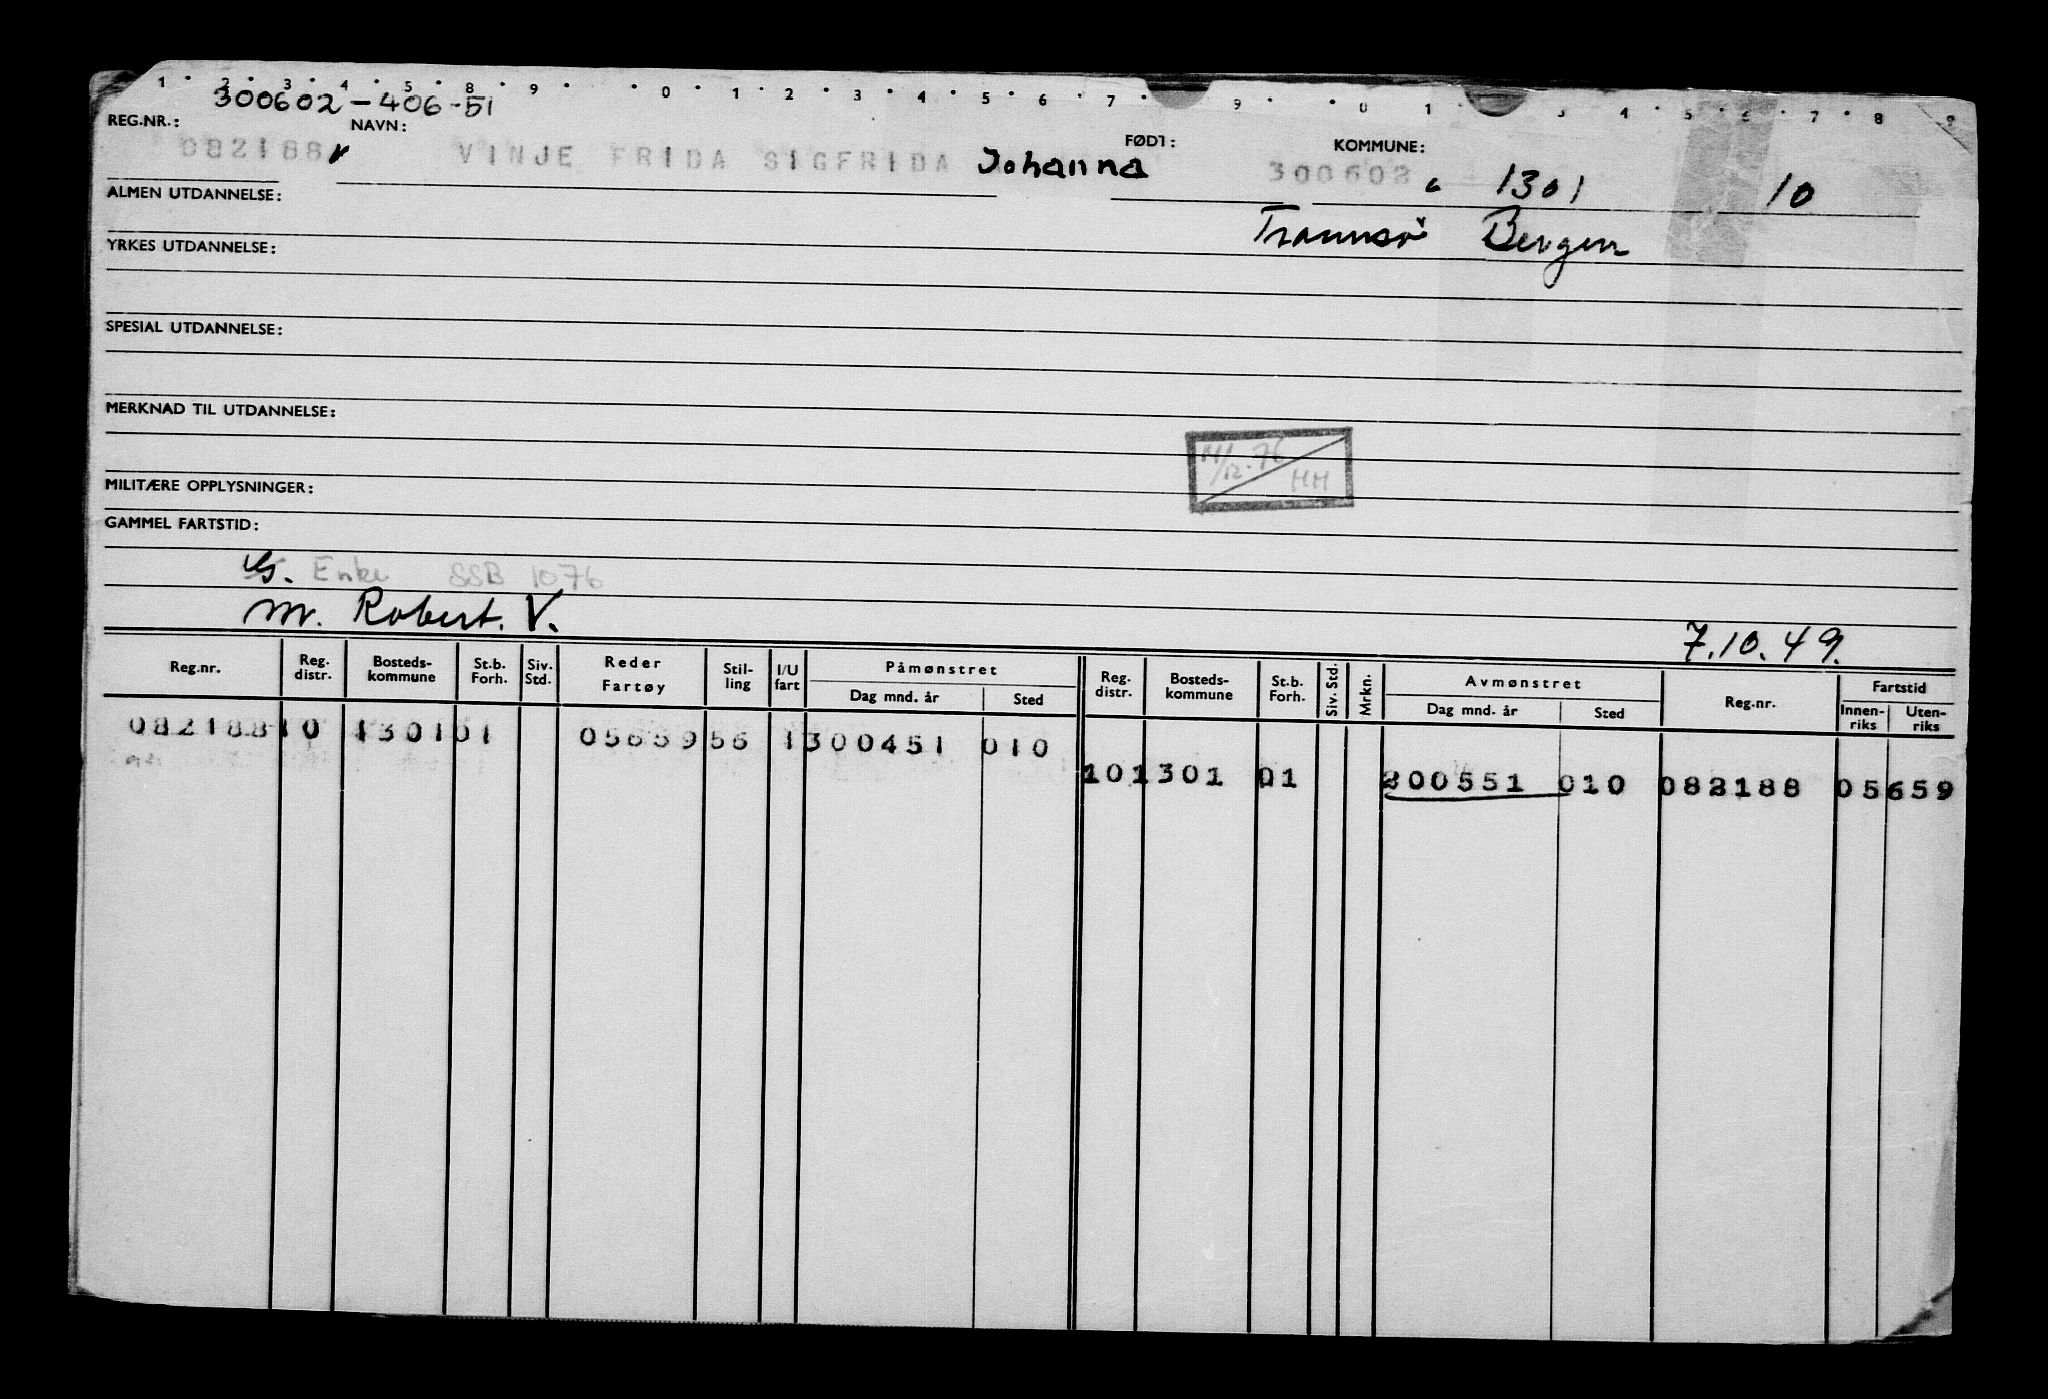 1 • 2 • 3 • 4 • 5 • 8 • 9 • • 0 • 1 • 2 • 3 • 4 • 5 • 6 • 7 • 9 • • 0 1 • 3 • 4 • 5 • 6 • 7 • 8 • 9
300602-406-51
REG.NR.: NAVN: FØDT: KOMMUNE:
082188 VINJE FRIDA SIGFRIDA Johanna 300602 1301 10
ALMEN UTDANNELSE: Tromsø Bergen
YRKES UTDANNELSE:
SPESIAL UTDANNELSE:
MERKNAD TIL UTDANNELSE:
12.76
HH
MILITÆRE OPPLYSNINGER:
GAMMEL FARTSTID:
G. Enke SSB 1076
M. Robert. V.
7.10.49.
Reg.nr. Reg. distr. Bosteds-kommune St.b. Forh. Siv. Std. Reder Fartøy Stil-ling I/U fart Påmønstret Dag mnd. år Sted Reg. distr. Bosteds-kommune St.b. Forh. Siv. Std. Mrkn. Avmønstret Dag mnd. år Sted Reg.nr. Fartstid Innen-riks Uten-riks
082188 10 1301 01 05659 56 1 300451 010
10 1301 01 200551 010 082188 05659